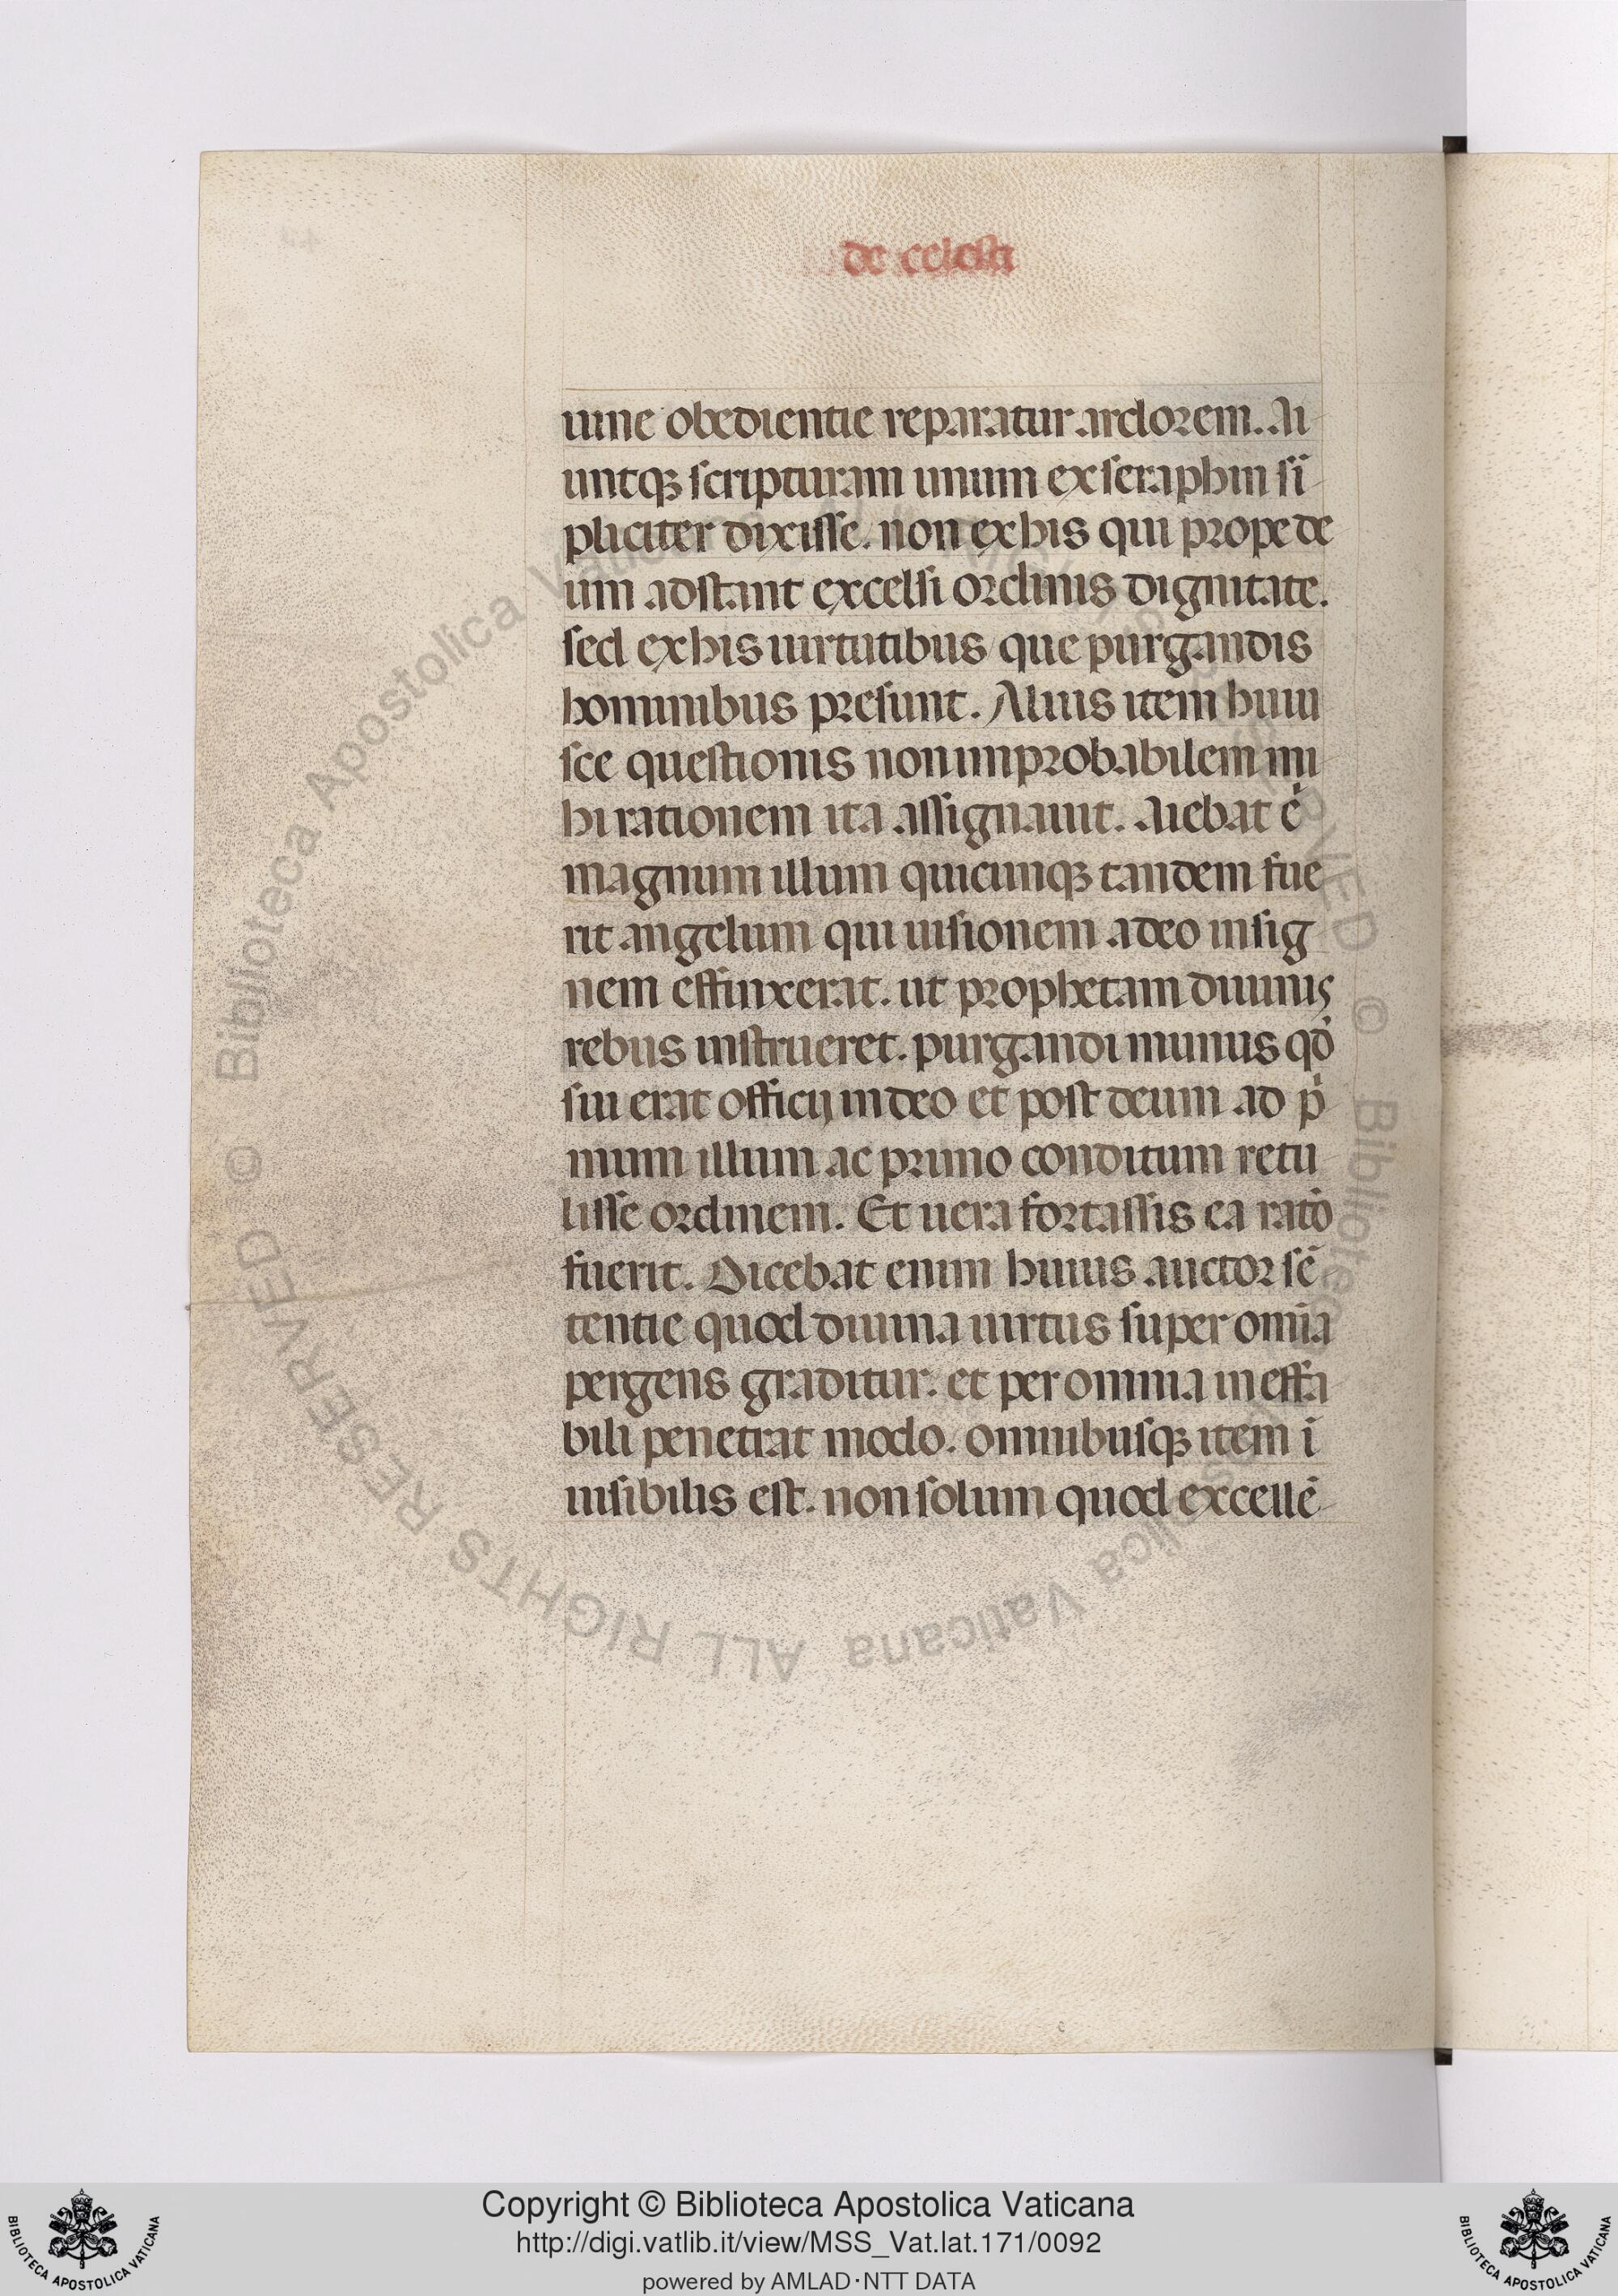 de celesti
uine obedientie reparatur ardorem. Ai
untqꝫ scripturam unum ex seraphin si̅
pliciter dixisse. non ex his qui prope de
um adstant excelsi ordinis dignitate.
sed ex his uirtutibus que purgandis
hominibus presunt. Alius item huiu
sce questionis non improbabilem mi
hi rationem ita assignauit. Aiebat e̅
magnum illum quicunqꝫ tandem fue
rit angelum qui uisionem adeo insig
nem effinxerat. ut prophetam diuinis
rebus instrueret. purgandi munus qd̅
sui erat officij in deo et post deum ad p̍
mum illum ac primo conditum retu
lisse ordinem. Et uera fortassis ea rato̅
fuerit. Dicebat enim huius auctor se̅
tentie quod diuina uirtus super omi̅a
pergens graditur. et per omnia ineffa
bili penetrat modo. omnibusqꝫ item i̅
uisibilis est. non solum quod excelle̅
Biblioteca Apostolica Vaticana ALL RIGHTS RESERVED ©
Copyright © Biblioteca Apostolica Vaticana
http://digi.vatlib.it/view/MSS_Vat.lat.171/0092
powered by AMLAD·NTT DATA
BIBLIOTECA APOSTOLICA VATICANA
BIBLIOTECA APOSTOLICA VATICANA